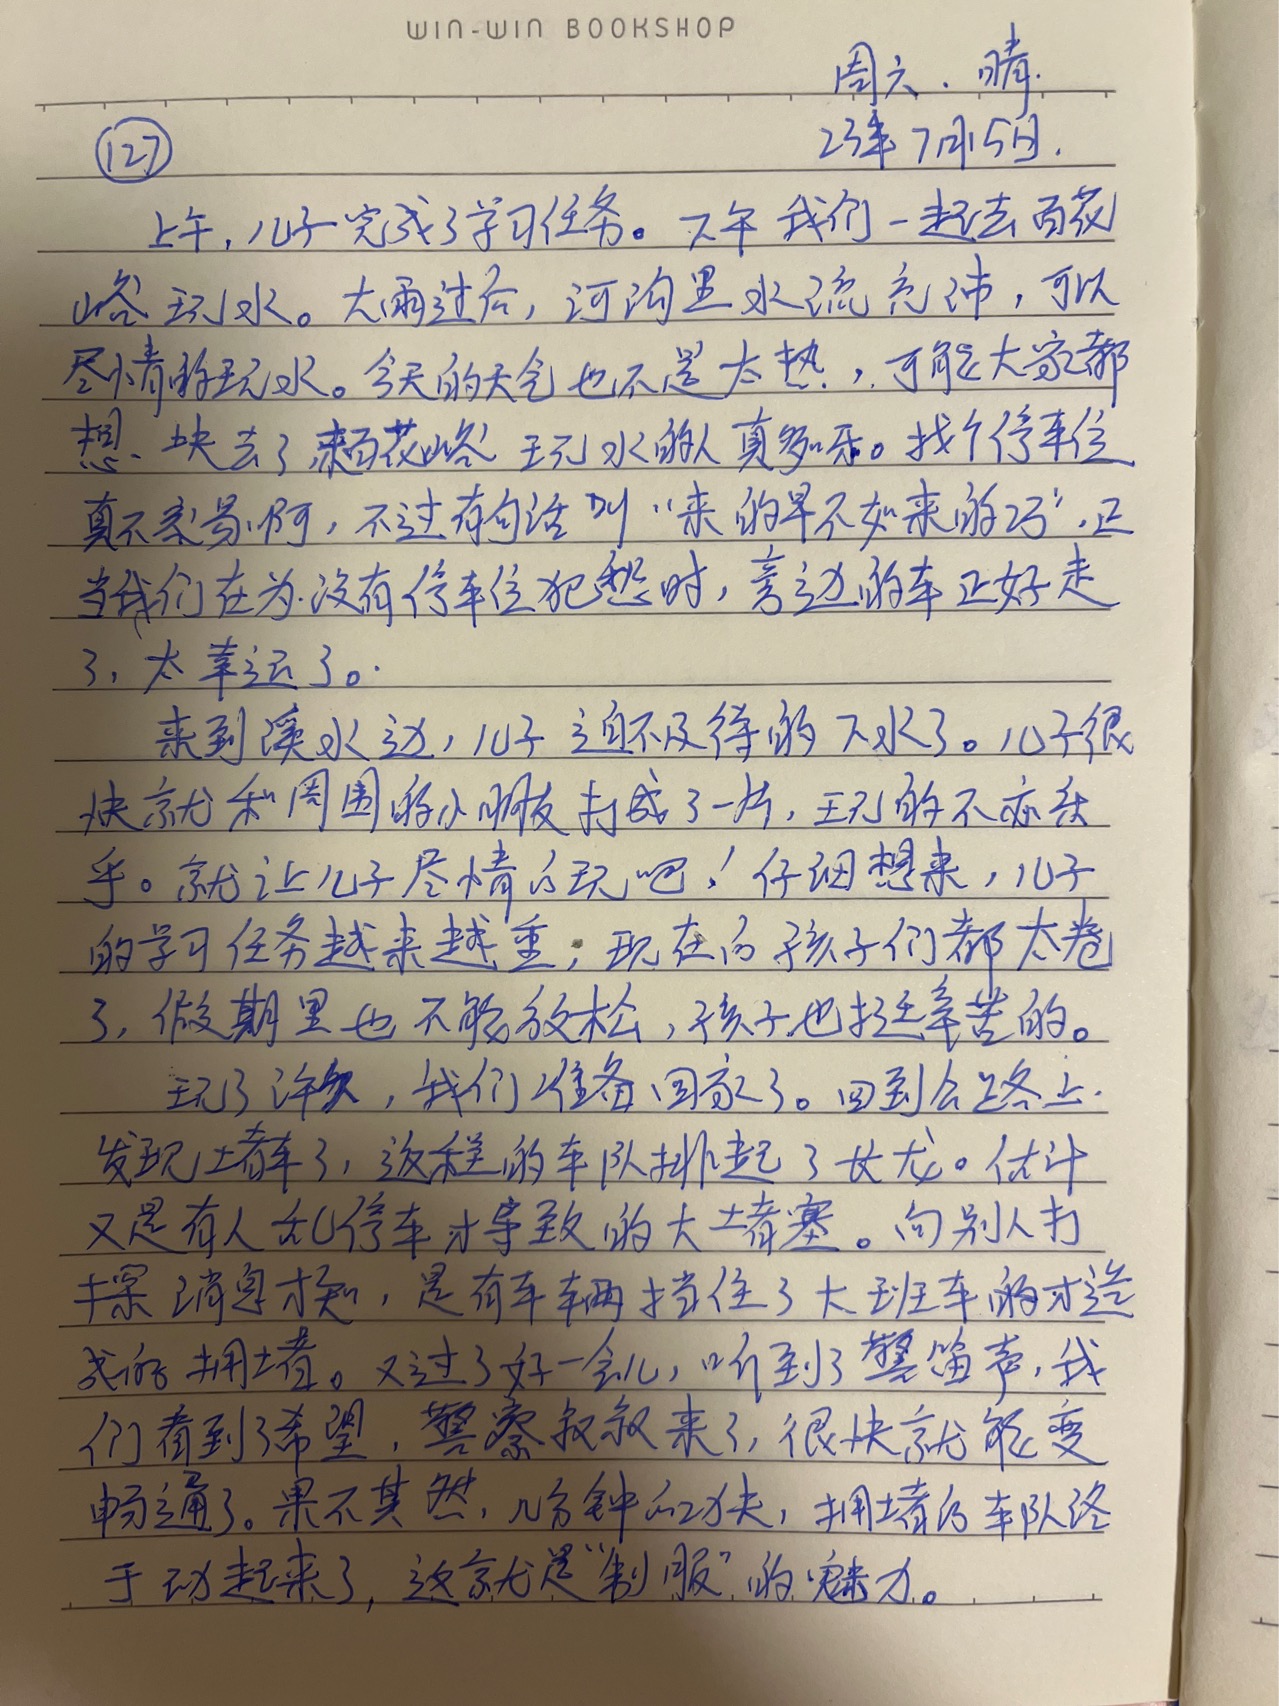 WIN-WIN BOOKSHOP
周六. 晴.
127
23年7月15日.
上午，儿子完成了学习任务。下午我们一起去百花
峪玩水。大雨过后，河沟里水流充沛，可以
尽情的玩水。今天的天气也不是太热，可能大家都
想一块去了来百花峪玩水的人真多呀。找个停车位
真不容易啊，不过有句话叫“来的早不如来的巧”，正
当我们在为没有停车位犯愁时，旁边的车正好走
了，太幸运了。
来到溪水边，儿子迫不及待的下水了。儿子很
快就和周围的小朋友打成了一片，玩的不亦乐
乎。就让儿子尽情的玩吧！仔细想来，儿子
的学习任务越来越重，现在的孩子们都太卷
了，假期里也不能放松，孩子也挺辛苦的。
玩了许久，我们准备回家了。回到公路上.
发现堵车了，返程的车队排起了长龙。估计
又是有人乱停车才导致的大堵塞。向别人打
探消息才知，是有车辆挡住了大班车的才造
成的拥堵。又过了好一会儿，听到了警笛声，我
们看到了希望，警察叔叔来了，很快就能变
畅通了。果不其然，几分钟的功夫，拥堵的车队终
于动起来了，这就是“制服”的魅力。